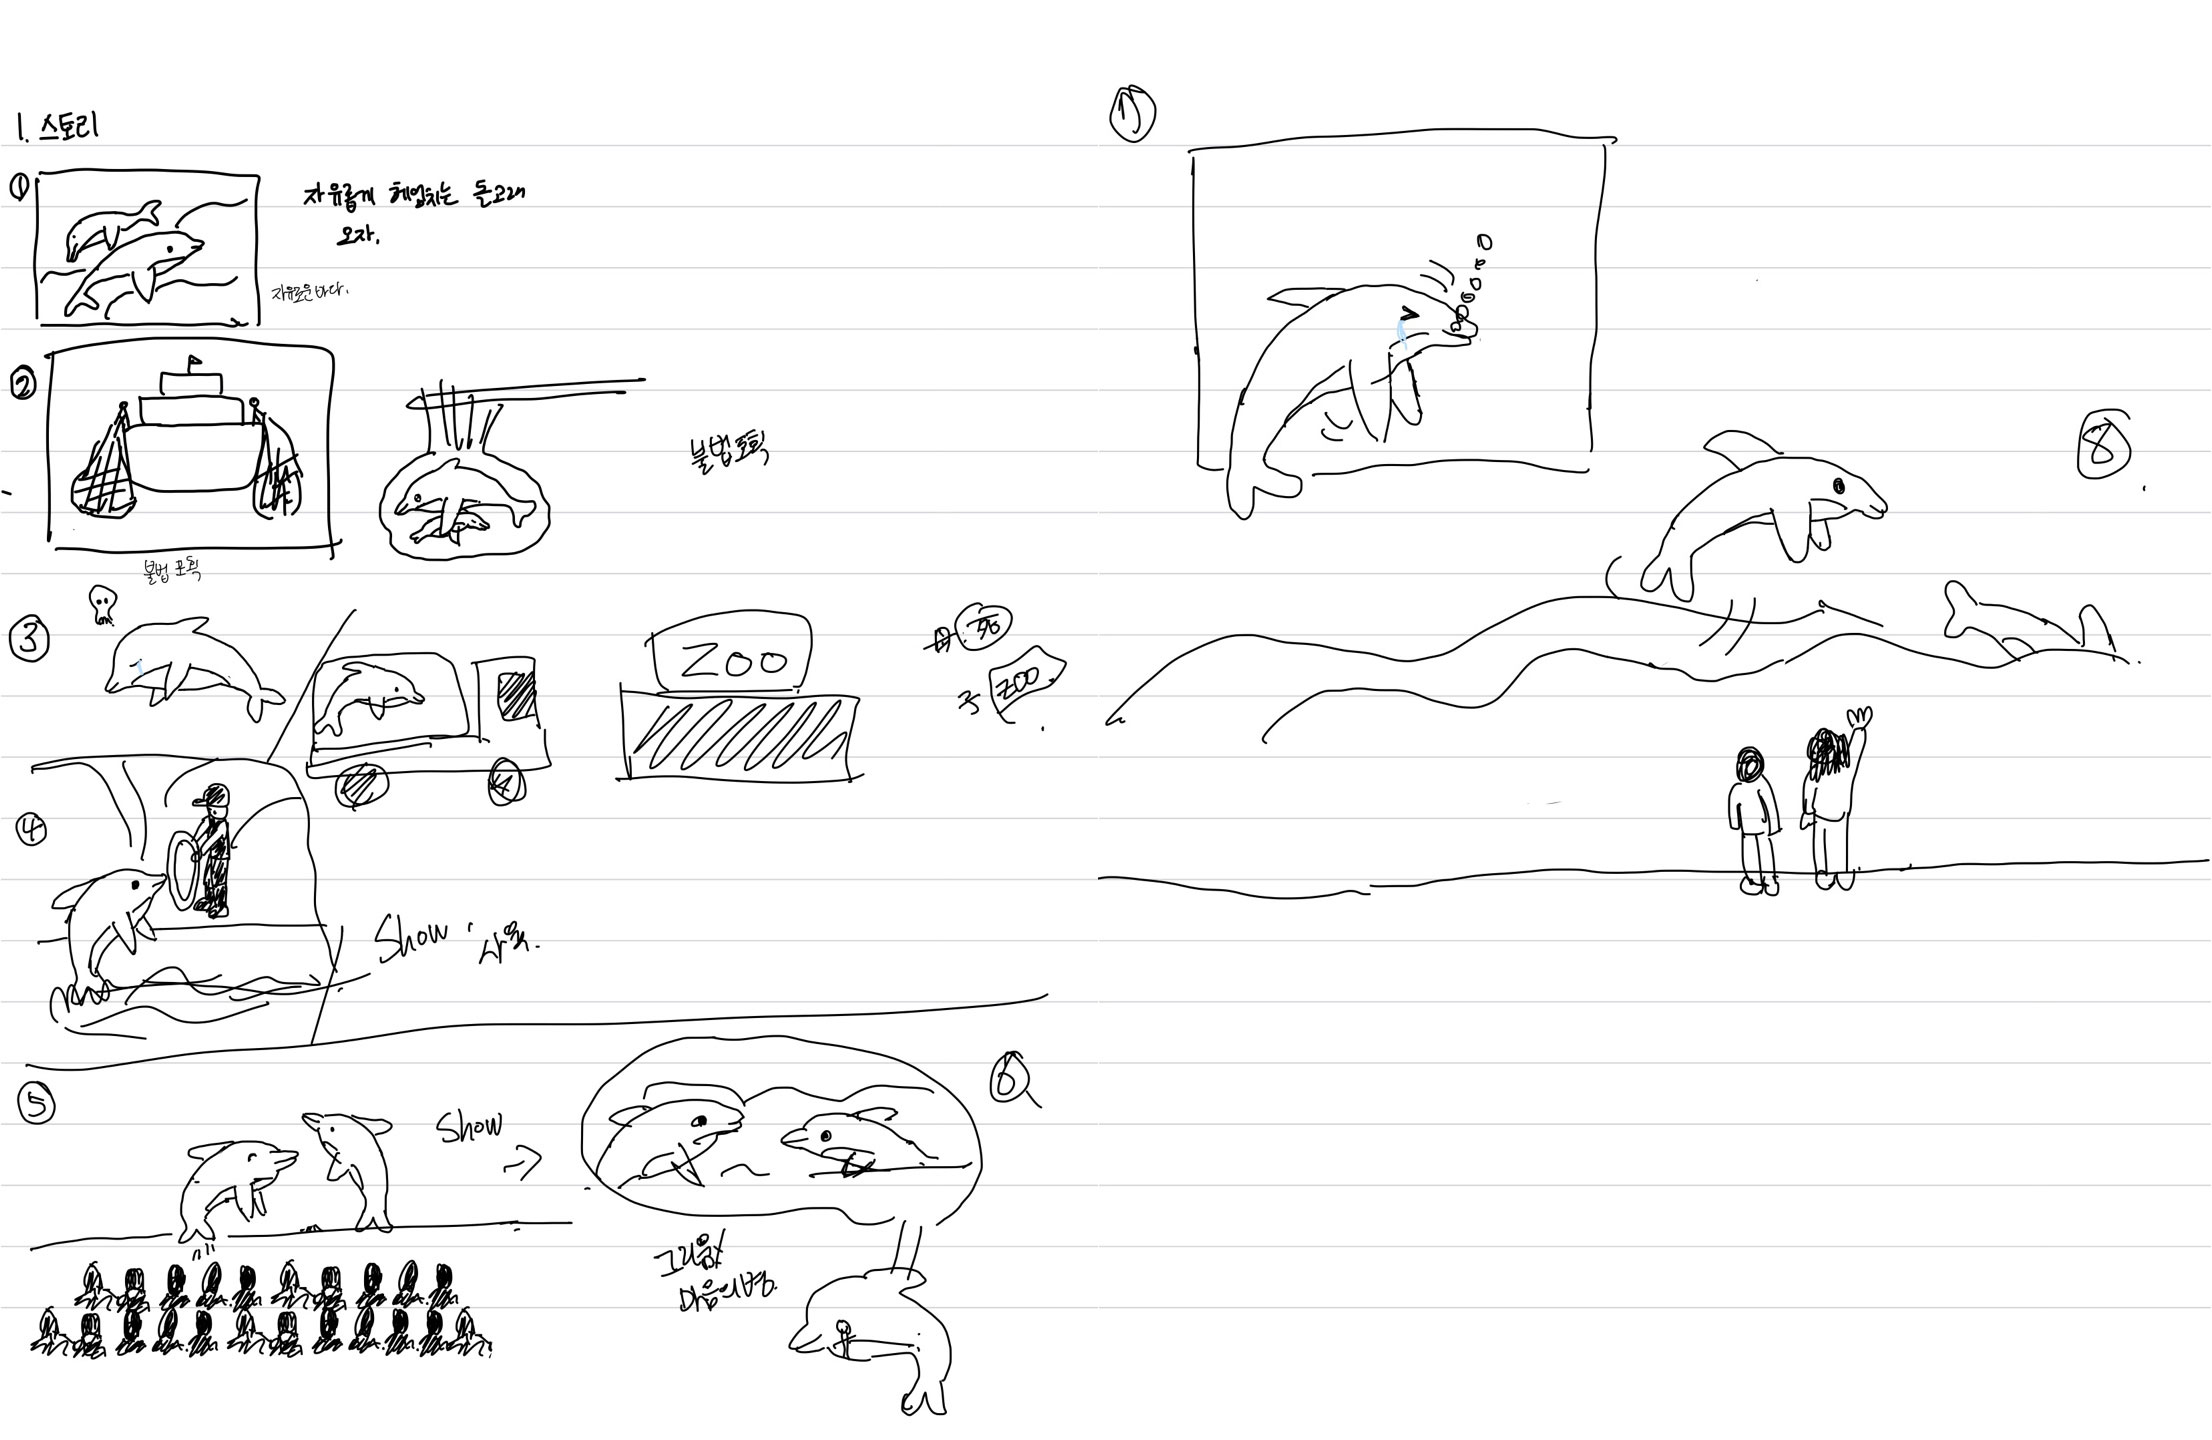 1. 스토리
①
자유롭게 헤엄치는 돌고래
모자.
자유로운 바다.
②
불법포획
불법 포획
③
ZOO
母. 死
子 ZOO
④
Show · 사육.
⑤
Show
→
⑥
그리움
마음의병.
⑦
⑧